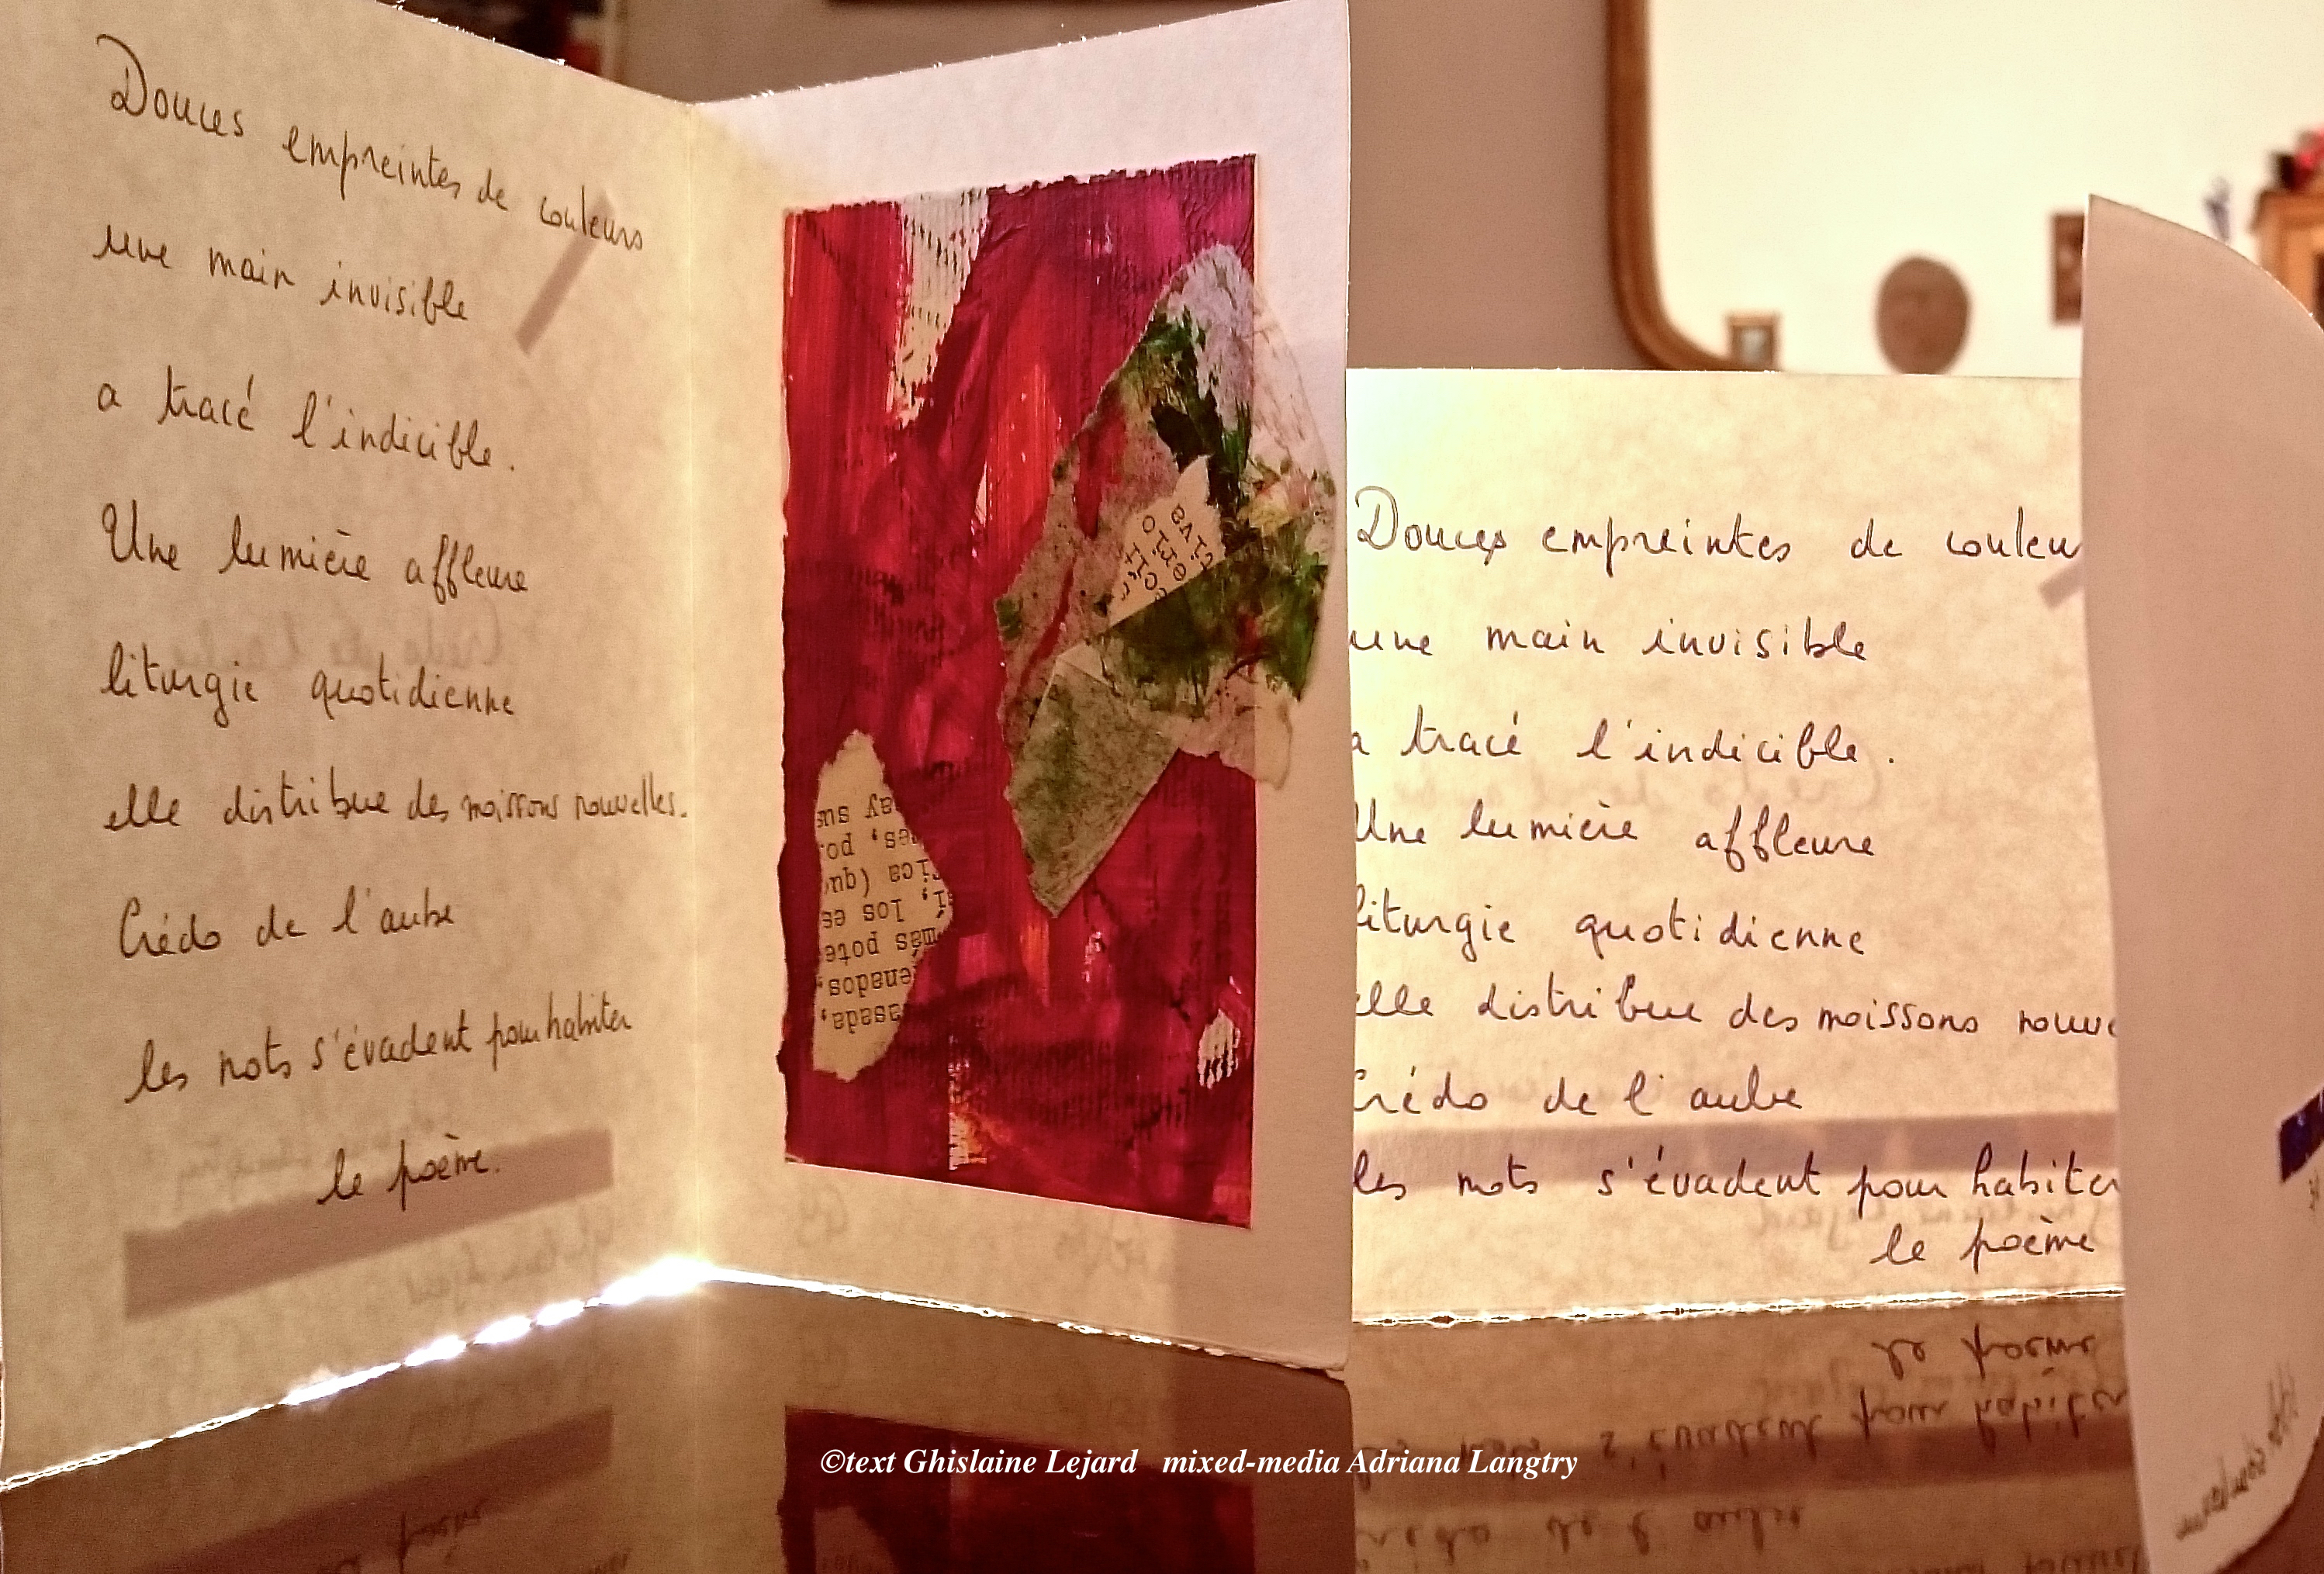 Douces empreintes de couleurs
une main invisible
a tracé l'indicible.
Une lumière affleure
liturgie quotidienne
elle distribue des moissons nouvelles.
Crédo de l'aube
les mots s'évadent pour habiter
le poème.
ay sus
po
rica (qu
los es
más pote
enados,
asada,
Douces empreintes de couleu
une main invisible
a tracé l'indicible.
Une lumière affleure
liturgie quotidienne
elle distribue des moissons nouve
Crédo de l'aube
les mots s'évadent pour habiter
le poème
©text Ghislaine Lejard mixed-media Adriana Langtry